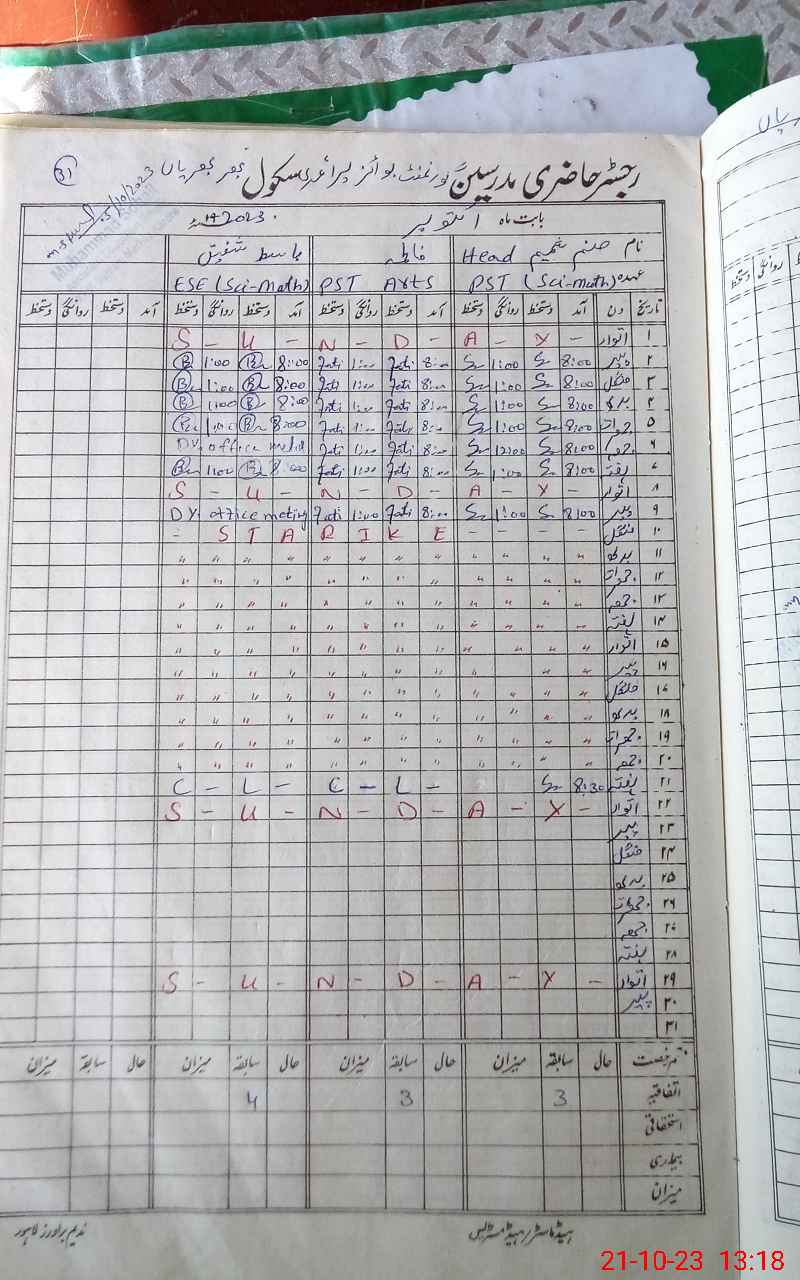 رجسٹر حاضری مدرسین گورنمنٹ بوائز پرائمری سکول 31
5/10/2023
بابت ماہ اکتوبر 2023ء
نام صنم شمیم Head فاطمہ باسط شفیق
عہدہ PST (Sci-Math) PST Arts ESE (Sci-Math)
تاریخ دن آمد دستخط روانگی دستخط آمد دستخط روانگی دستخط آمد دستخط روانگی دستخط آمد دستخط روانگی دستخط
۱ اتوار S - U - N - D - A - Y -
۲ پیر 8:00 S 1:00 S 8:00 Fati 1:00 Fati 8:00 B 1:00 B
۳ منگل 8:00 S 1:00 S 8:00 Fati 1:00 Fati 8:00 B 1:00 B
۴ بدھ 8:00 S 1:00 S 8:00 Fati 1:00 Fati 8:00 B 1:00 B
۵ جمعرات 8:00 S 1:00 S 8:00 Fati 1:00 Fati 8:00 B 1:00 B
۶ جمعہ 8:00 S 12:00 S 8:00 Fati 1:00 Fati DY. office
۷ ہفتہ 8:00 S 1:00 S 8:00 Fati 1:00 Fati 8:00 B 1:00 B
۸ اتوار S - U - N - D - A - Y -
۹ پیر 8:00 S 1:00 S 8:00 Fati 1:00 Fati DY. office meting
۱۰ منگل - S T A R I K E - - - -
۱۱ بدھ " " " " " " " " " " " "
۱۲ جمعرات " " " " " " " " " " " "
۱۳ جمعہ " " " " " " " " " " " "
۱۴ ہفتہ " " " " " " " " " " " "
۱۵ اتوار " " " " " " " " " " " "
۱۶ پیر " " " " " " " " " " " "
۱۷ منگل " " " " " " " " " " " "
۱۸ بدھ " " " " " " " " " " " "
۱۹ جمعرات " " " " " " " " " " " "
۲۰ جمعہ " " " " " " " " " " " "
۲۱ ہفتہ 8:30 S C - L - C - L -
۲۲ اتوار S - U - N - D - A - Y -
۲۳ پیر
۲۴ منگل
۲۵ بدھ
۲۶ جمعرات
۲۷ جمعہ
۲۸ ہفتہ
۲۹ اتوار S - U - N - D - A - Y -
۳۰ پیر
۳۱
قسم رخصت حال سابقہ میزان حال سابقہ میزان حال سابقہ میزان حال سابقہ میزان
اتفاقیہ 3 3 4
استحقاقی
بیماری
میزان
ہیڈ ماسٹر/ہیڈ مسٹریس ندیم برادرز لاہور
21-10-23 13:18